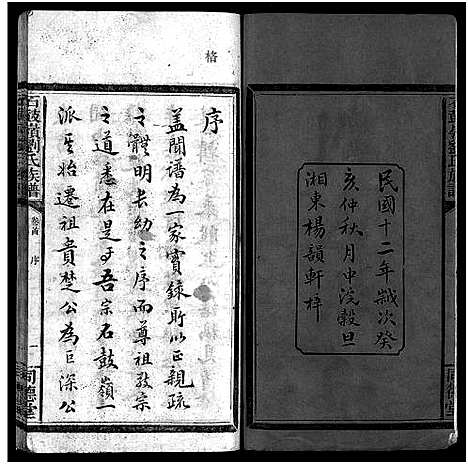 民國十二年歲次癸
亥仲秋月中浣穀旦
湘東楊韻軒梓
同德堂
格
序
蓋聞譜為一家實錄所以正親疏
之體明長幼之序而尊祖敬宗
之道悉在是焉吾宗石鼓嶺一
派其始遷祖貴楚公為巨深公
石鼓嶺劉氏族譜
卷首 序
一
同德堂